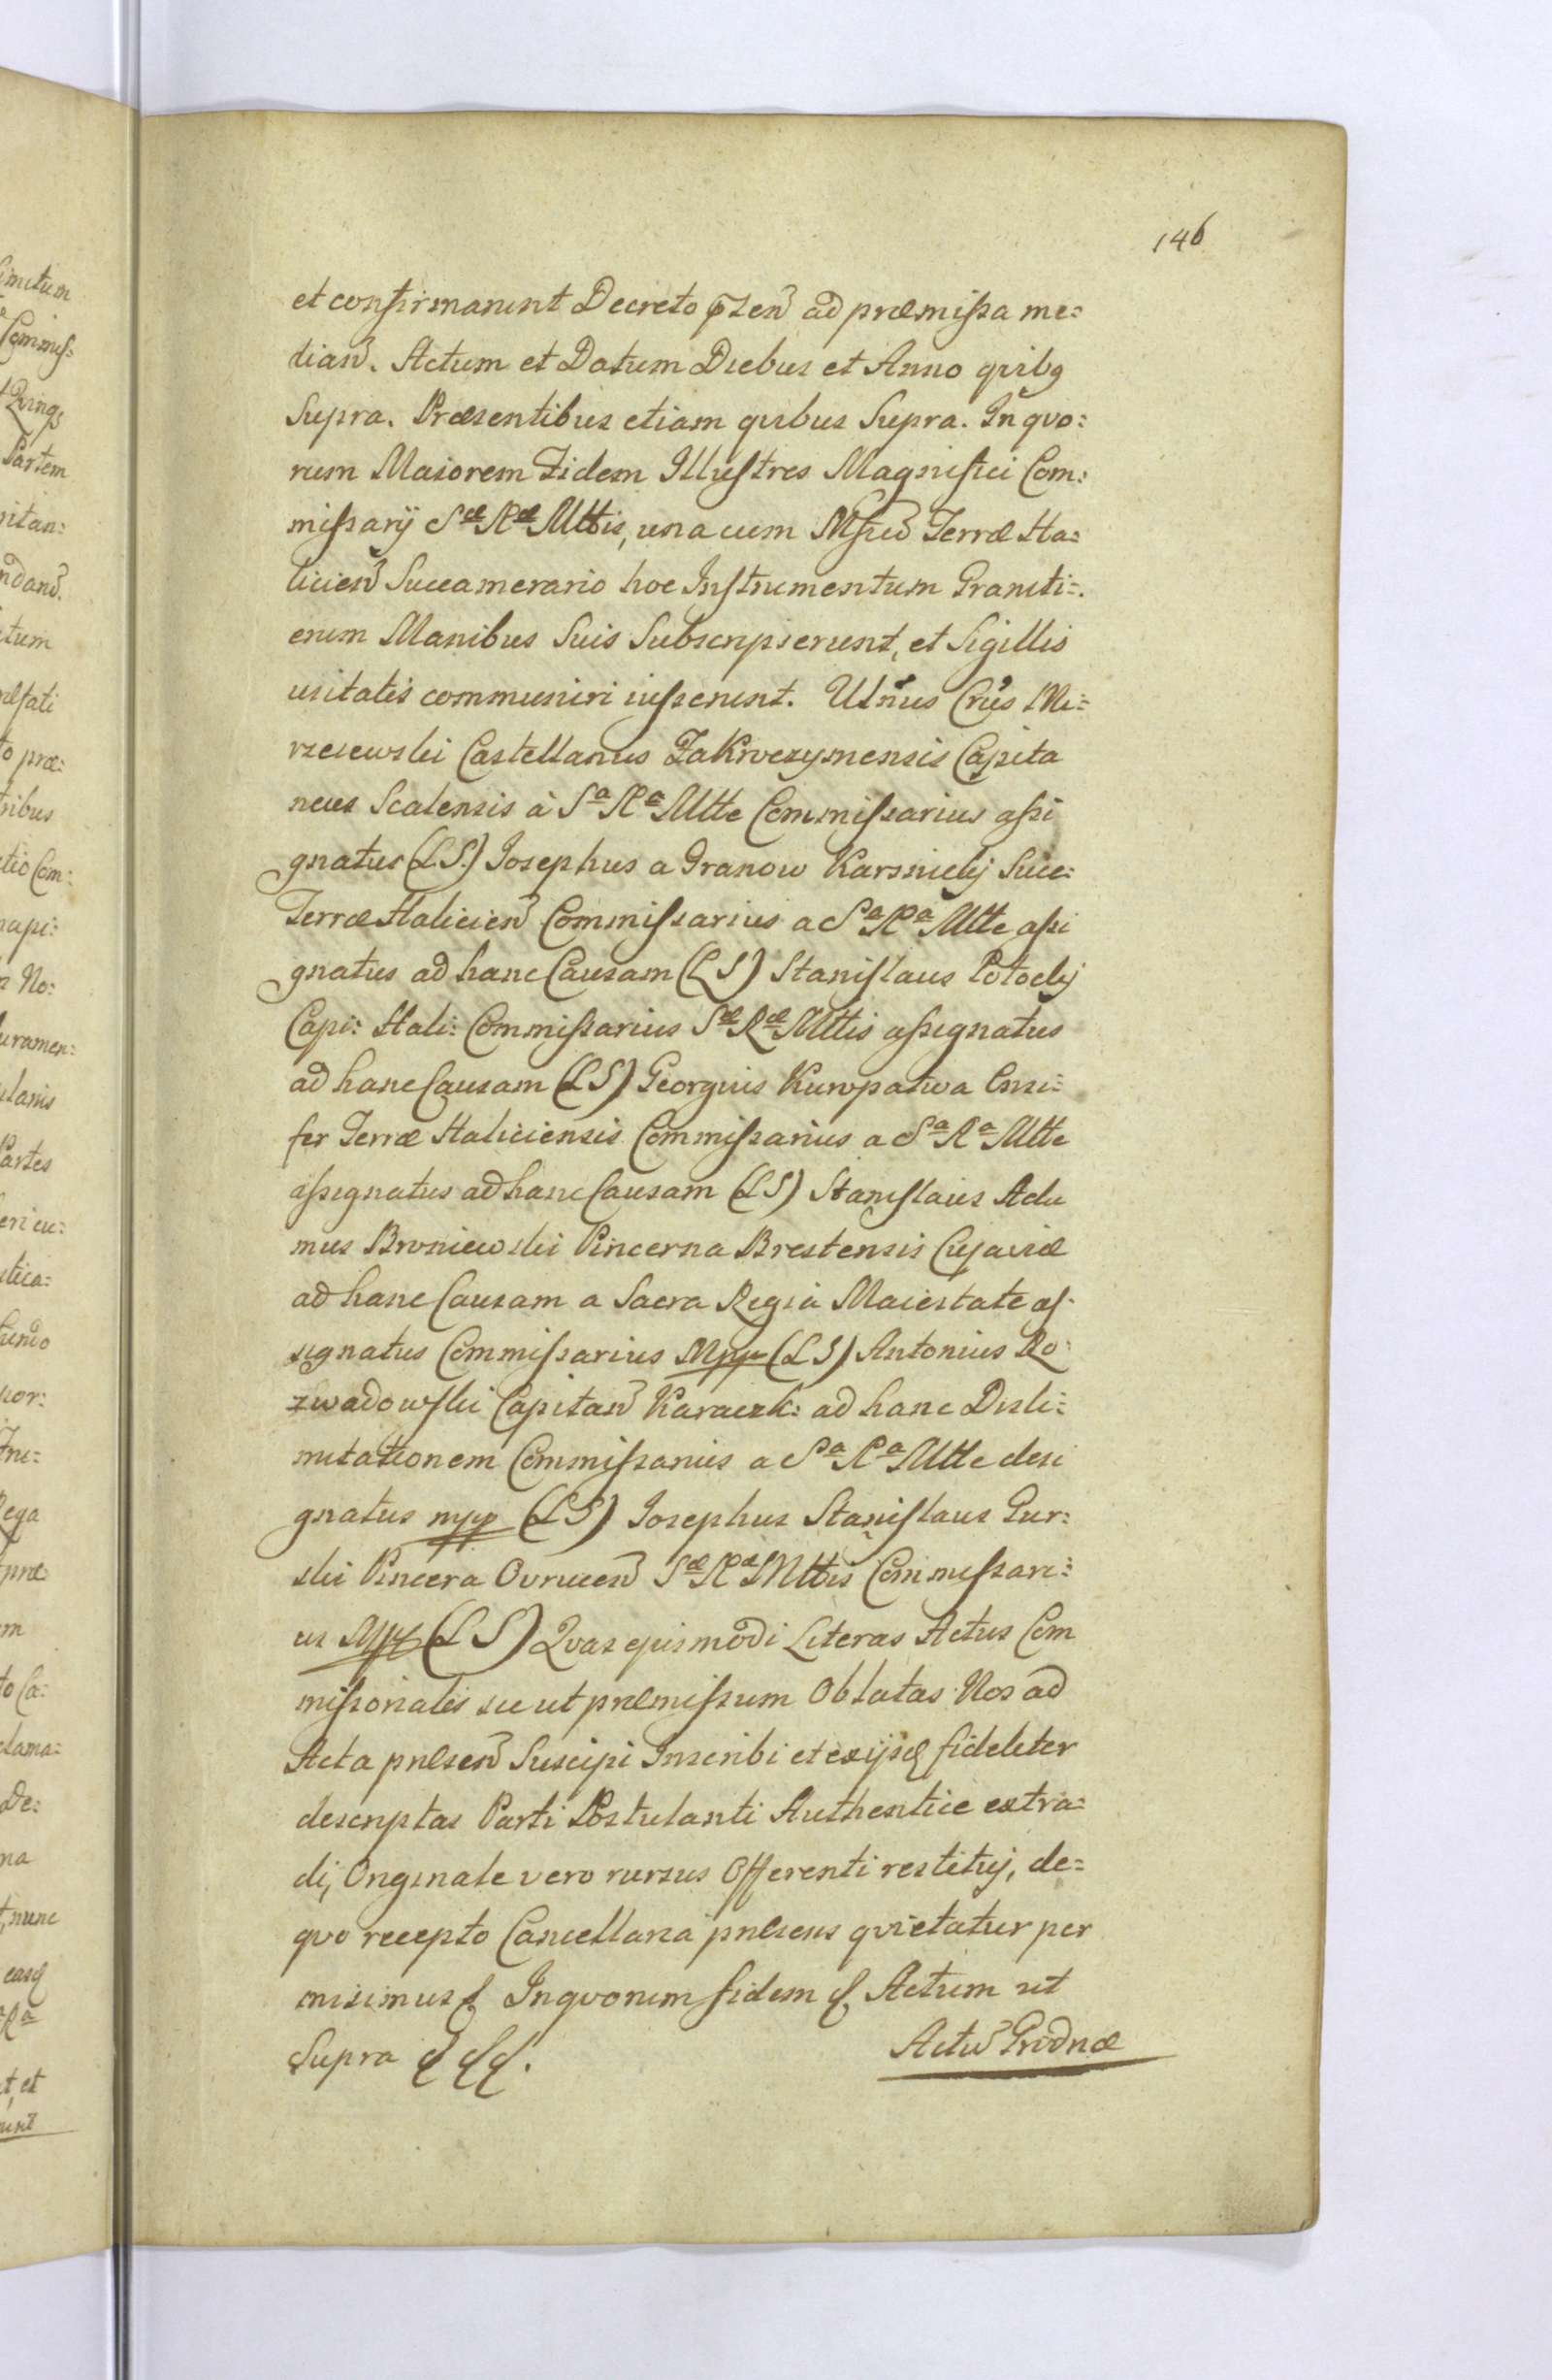 146
et confirmarunt Decreto pñzen̄ ad præmissa me=
dian̄. Actum et Datum Diebus et Anno quibg
Supra. Præsentibus etiam quibus Supra. In quo=
rum Maiorem Fidem Illustres Magnifici Com=
missarij Sæ Ræ Mttis, una cum Mfico Terræ Ha=
licien̄ Succamerario hoc Instrumentum Graniti=
erum Manibus Suis Subscripserunt, et Sigillis
usitatis communiri iusserunt. Crus Mi=
rzeiewski Castellanus Zakroczymensis Capita
neus Scalensis à Sa Ra Mtte Commissarius assi
gnatus (L.S.) Josephus a Granow Karsnickij Succ=
Terræ Halicien̄ Commissarius a Sa Ra Mtte assi
gnatus ad hanc Causam (LS) Stanislaus Potockij
Capi: Hali: Commissarius Sæ Ræ Mttis assignatus
ad hanc Causam (LS) Georgius Kuropatwa Ensi=
fer Terræ Haliciensis Commissarius a Sa Ra Mtte
assignatus ad hanc Causam (LS) Stanislaus Ada
mus Broniewski Pincerna Brestensis Cujaviæ
ad hanc Causam a Sacra Regia Maiestate as=
signatus Commissarius Mpp (LS) Antonius Ro=
zwadowski Capitan̄ Karaczk: ad hanc Disli=
mitationem Commissarius a Sa Ra Mtte desi
gnatus mpp (LS) Josephus Stanislaus Gur=
ski Pincera Ovrucen̄ Sæ Ræ Mttis Commissari=
us Mpp (LS) Quas ejusmodi Literas Actus Com
missorialis sic ut præmissum Oblatas Nos ad
Acta præsen̄ Suscipi Inscribi et ex ijsq fideliter
descriptas Parti Postulanti Authentice extra=
di, Originale vero rursus Offerenti restituj, de=
quo recepto Cancellaria præsens quietatur per
misimus q. In quorum fidem q. Actum ut
Supra q q q.
Actū Grodnæ